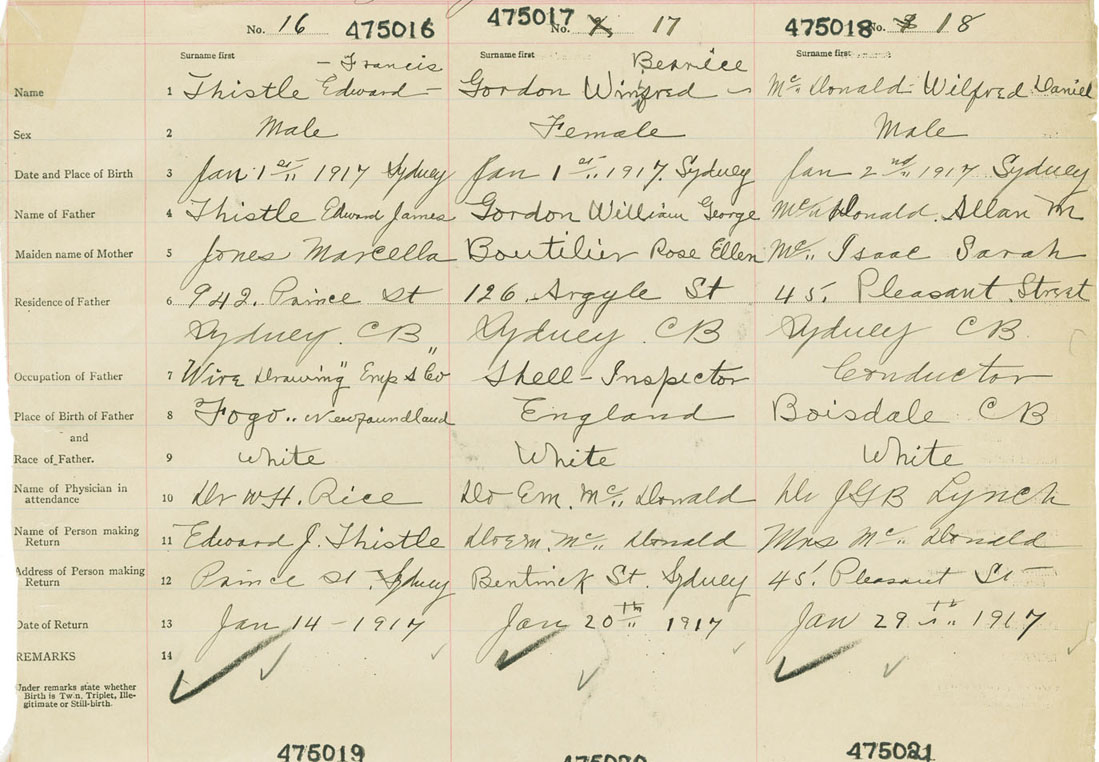 No. 16 475016 475017 No. 17 475018 No. 18
Surname first Surname first Surname first
- Francis Bernice
Name 1 Thistle Edward - Gordon Winifred - McDonald Wilfred Daniel
Sex 2 Male Female Male
Date and Place of Birth 3 Jan 1st 1917 Sydney Jan 1st 1917. Sydney Jan 2nd 1917 Sydney
Name of Father 4 Thistle Edward James Gordon William George McDonald. Allan M
Maiden name of Mother 5 Jones Marcella Boutilier Rose Ellen Mc Isaac Sarah
Residence of Father 6 942. Prince St 126 Argyle St 45. Pleasant Street
Sydney. CB Sydney. CB Sydney CB
Occupation of Father 7 Wire Drawing" Emp S Co" Shell-Inspector Conductor
Place of Birth of Father 8 Fogo.. Newfoundland England Boisdale CB
and
Race of Father. 9 White White White
Name of Physician in
attendance 10 Dr W H. Rice Do Em. Mc Donald Dr JGB Lynch
Name of Person making
Return 11 Edward J. Thistle Do Em. Mc Donald Mrs Mc Donald
Address of Person making
Return 12 Prince St. Sydney Bentinck St. Sydney 45. Pleasant St
Date of Return 13 Jan 14 - 1917 Jan 20th 1917 Jan 29th 1917
REMARKS 14
Under remarks state whether
Birth is Twin, Triplet, Ille-
gitimate or Still-birth.
475019 475020 475021